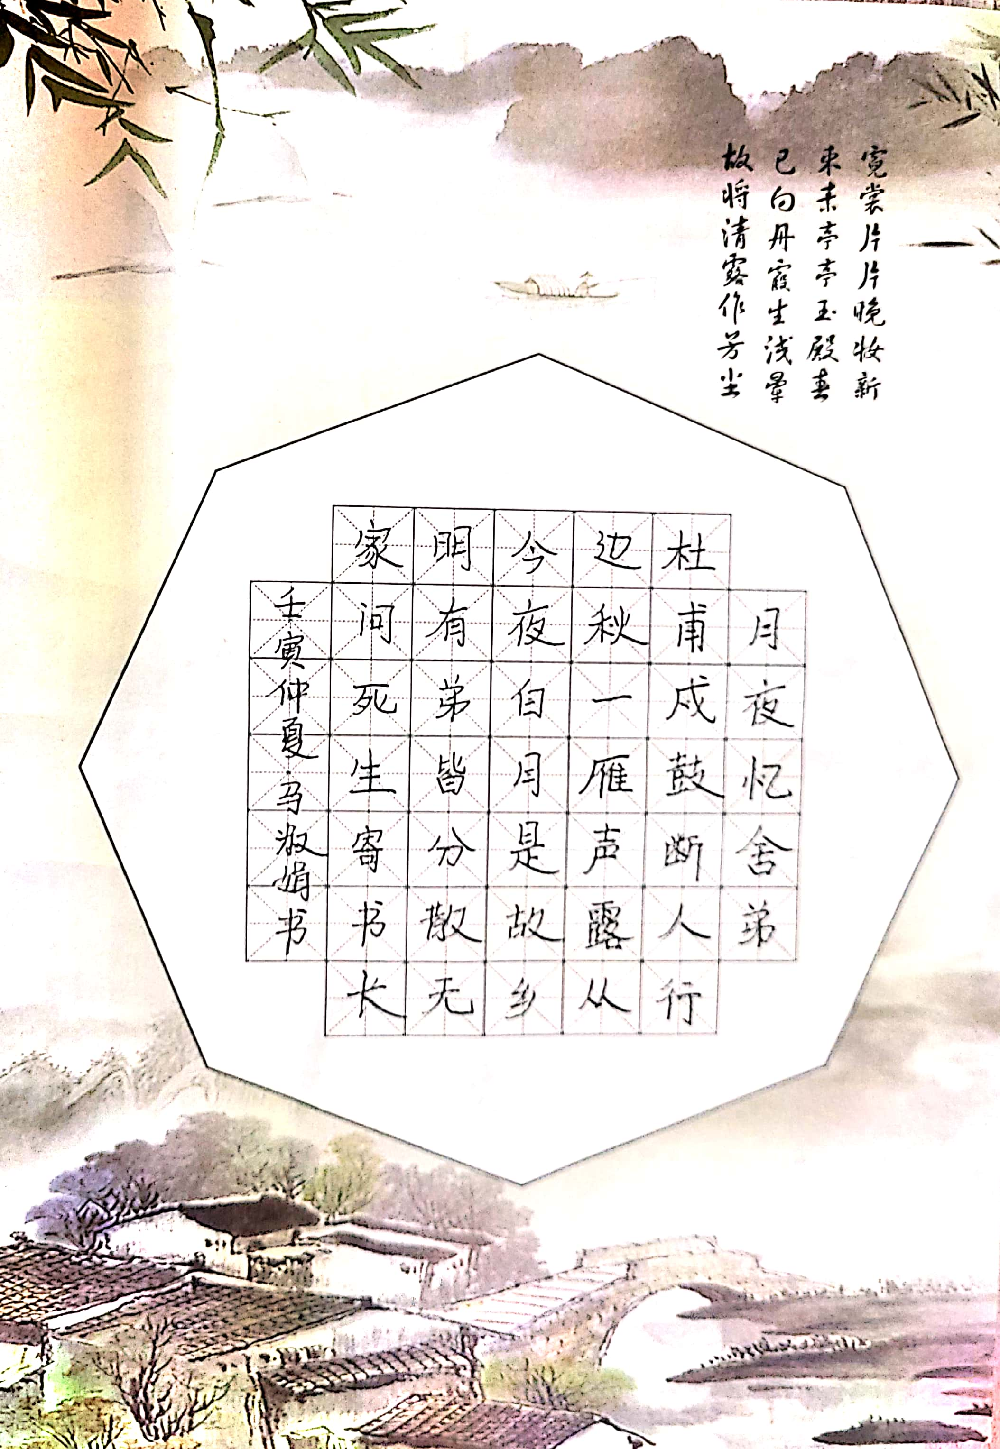 霓裳片片晚妆新
束素亭亭玉殿春
已向丹霞生浅晕
故将清露作芳尘
月夜忆舍弟
杜甫戍鼓断人行
边秋一雁声露从
今夜白月是故乡
明有弟皆分散无
家问死生寄书长
壬寅仲夏马淑娟书